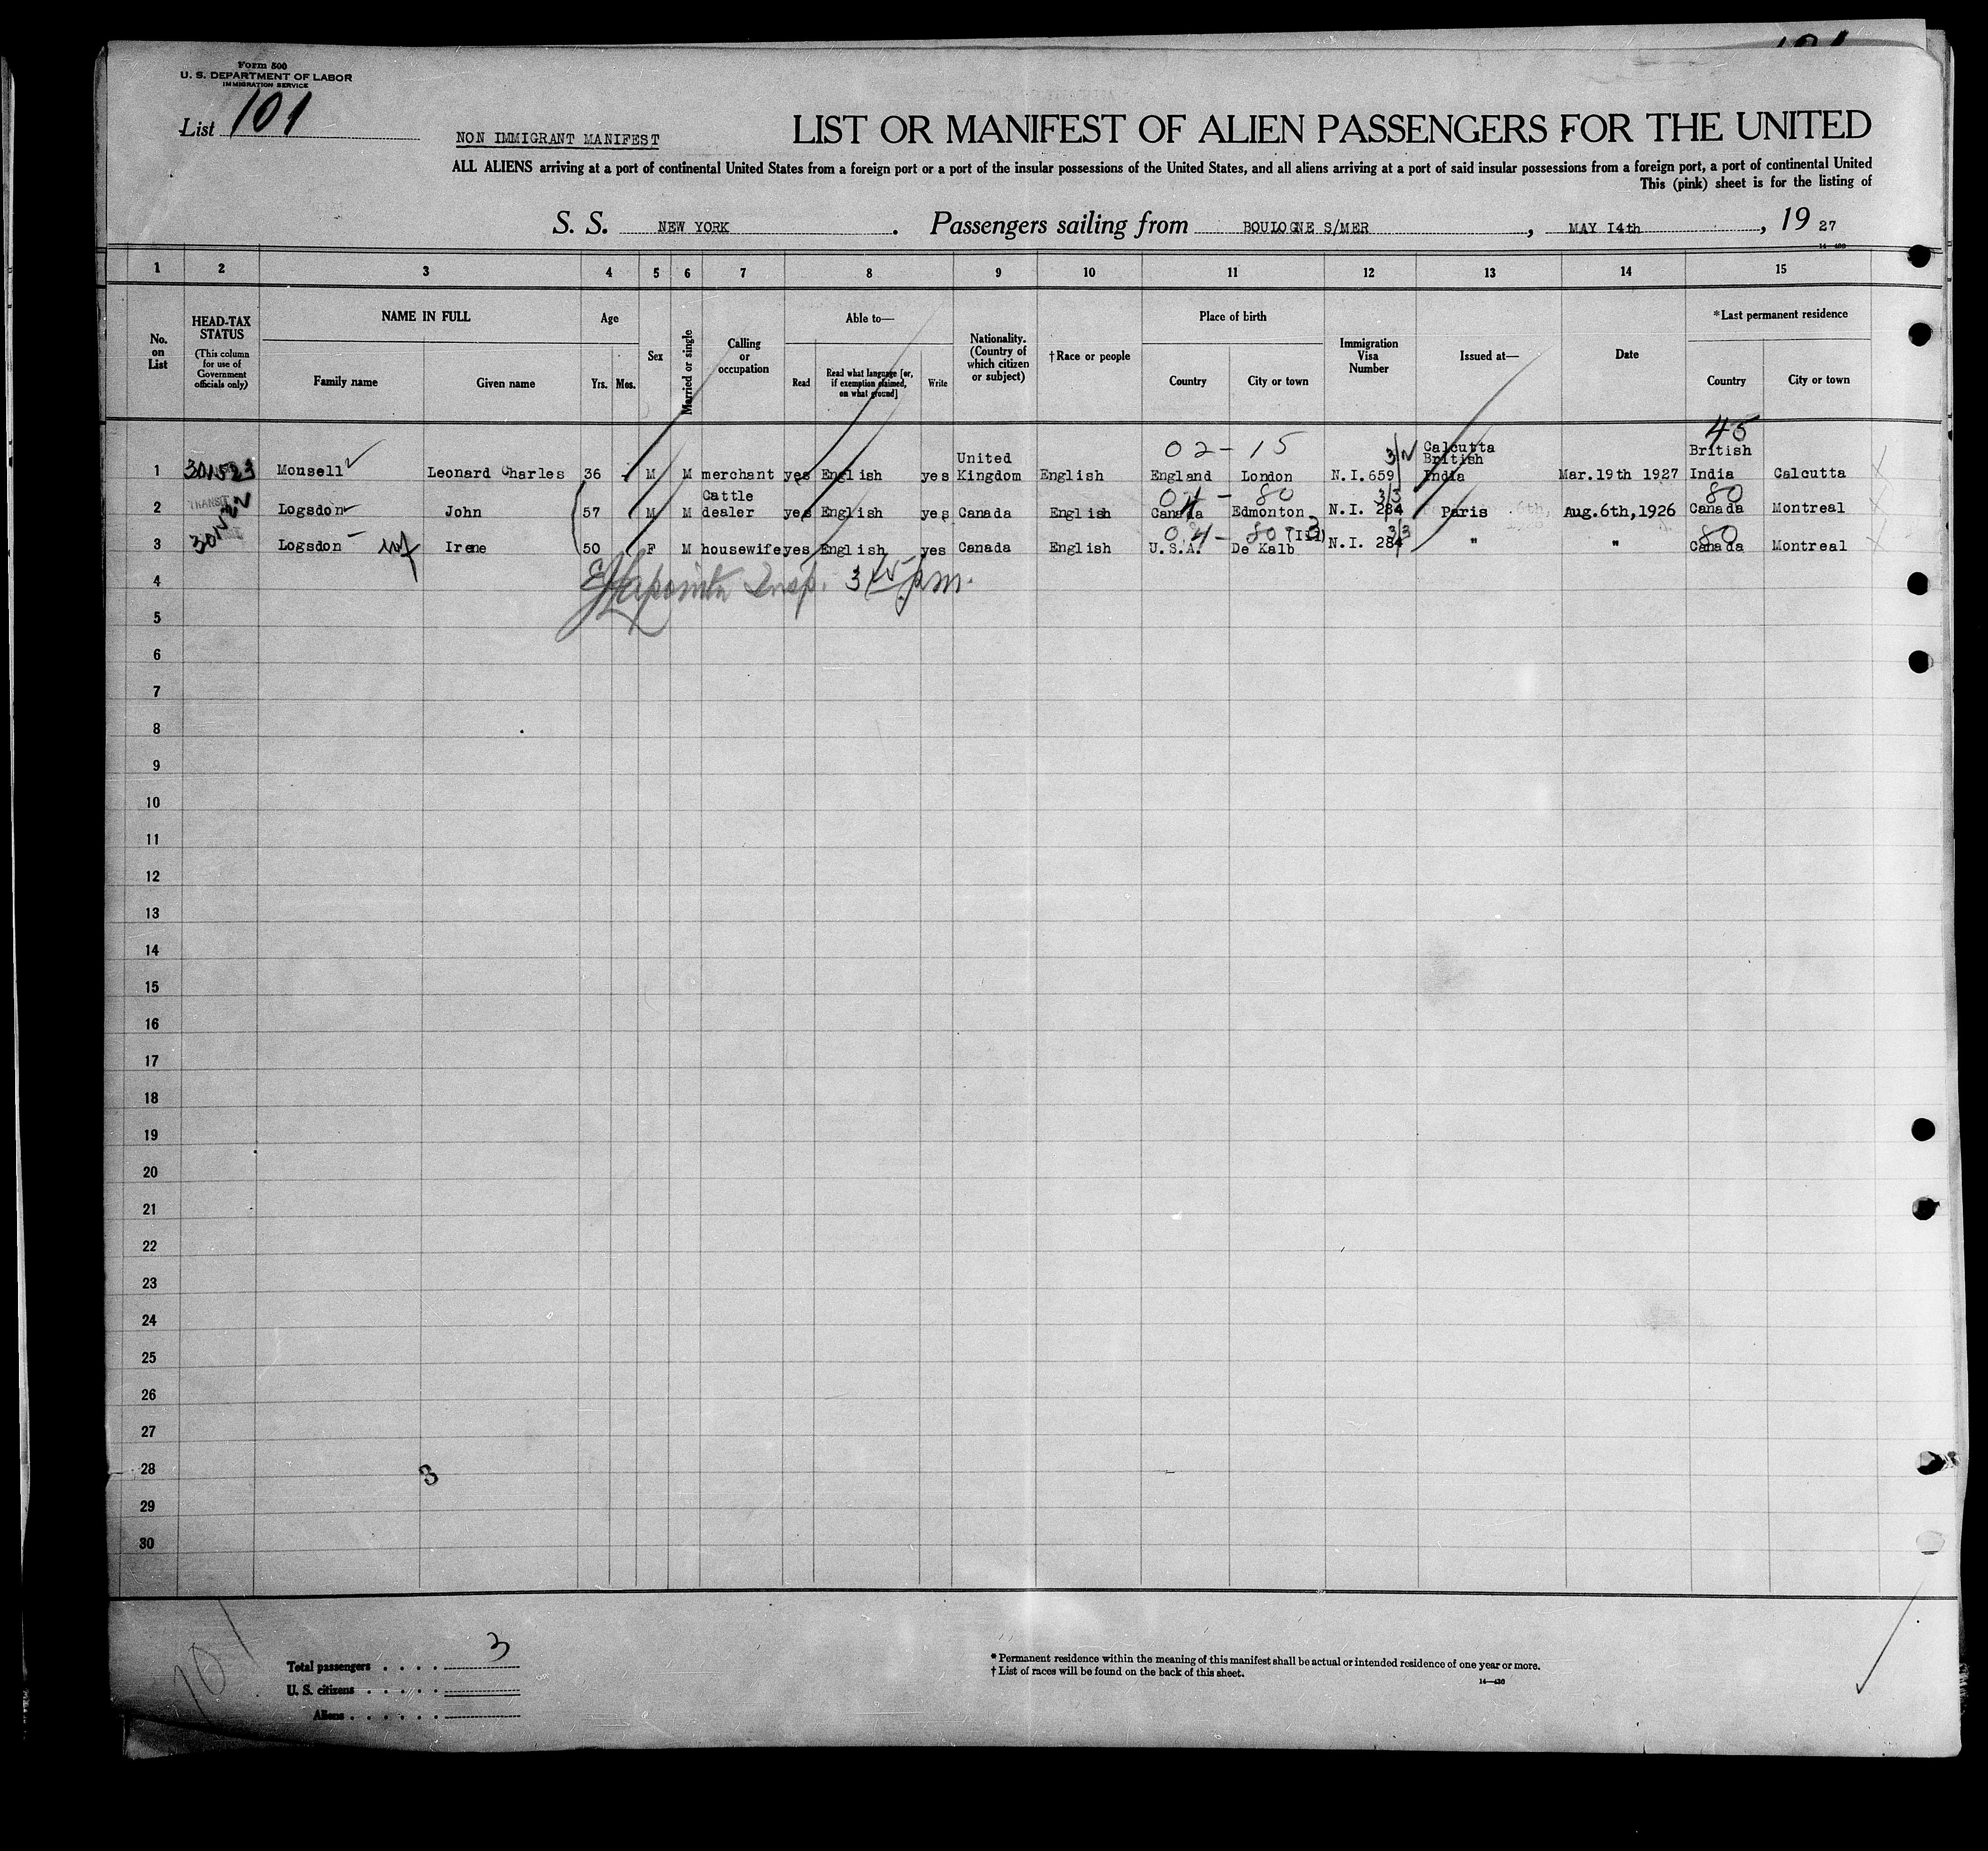 Form 500
U. S. DEPARTMENT OF LABOR
IMMIGRATION SERVICE
List 101
NON IMMIGRANT MANIFEST
LIST OR MANIFEST OF ALIEN PASSENGERS FOR THE UNITED
ALL ALIENS arriving at a port of continental United States from a foreign port or a port of the insular possessions of the United States, and all aliens arriving at a port of said insular possessions from a foreign port, a port of continental United
This (pink) sheet is for the listing of
S. S. NEW YORK . Passengers sailing from BOULOGNE S/MER , MAY 14th , 19 27
1 2 3 4 5 6 7 8 9 10 11 12 13 14 15
No. on List
HEAD-TAX STATUS (This column for use of Government officials only)
NAME IN FULL
Family name Given name
Age
Yrs. Mos.
Sex
Married or single
Calling or occupation
Able to—
Read
Read what language [or, if exemption claimed, on what ground]
Write
Nationality. (Country of which citizen or subject)
†Race or people
Place of birth
Country City or town
Immigration Visa Number
Issued at—
Date
*Last permanent residence
Country City or town
02-15 45
1 Mousell Leonard Charles 36 M M merchant yes English yes United Kingdom English England London N.I.659 Calcutta British India Mar.19th 1927 British India Calcutta
04-80 3/3 80
2 TRANSIT Logsdon John 57 M M Cattle dealer yes English yes Canada English Canada Edmonton N.I. 284 Paris Aug.6th,1926 Canada Montreal
04-80 3/3 80
3 Logsdon Irene 50 F M housewife yes English yes Canada English U.S.A. De Kalb (Ill) N.I. 284 " " Canada Montreal
Lapointe Insp. 3 45 pm.
4
5
6
7
8
9
10
11
12
13
14
15
16
17
18
19
20
21
22
23
24
25
26
27
28 3
29
30
101
Total passengers . . . . 3
U. S. citizens . . . . .
Aliens . . . . . .
* Permanent residence within the meaning of this manifest shall be actual or intended residence of one year or more.
† List of races will be found on the back of this sheet.